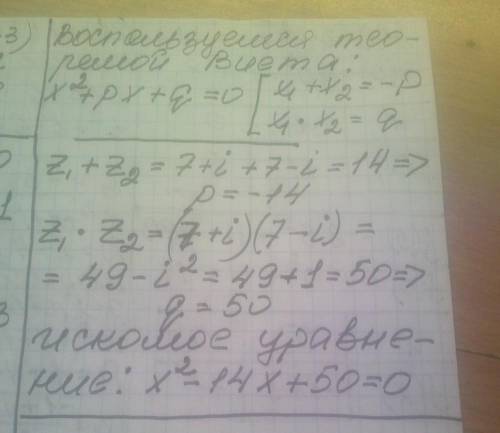 Воспользуемся тео-
ремой Виета:
x²+px+q=0 [x₁+x₂=-p
x₁·x₂=q
z₁+z₂=7+i+7-i=14=>
p=-14
z₁·z₂=(7+i)(7-i)=
=49-i²=49+1=50=>
q=50
искомое уравне-
ние: x²-14x+50=0